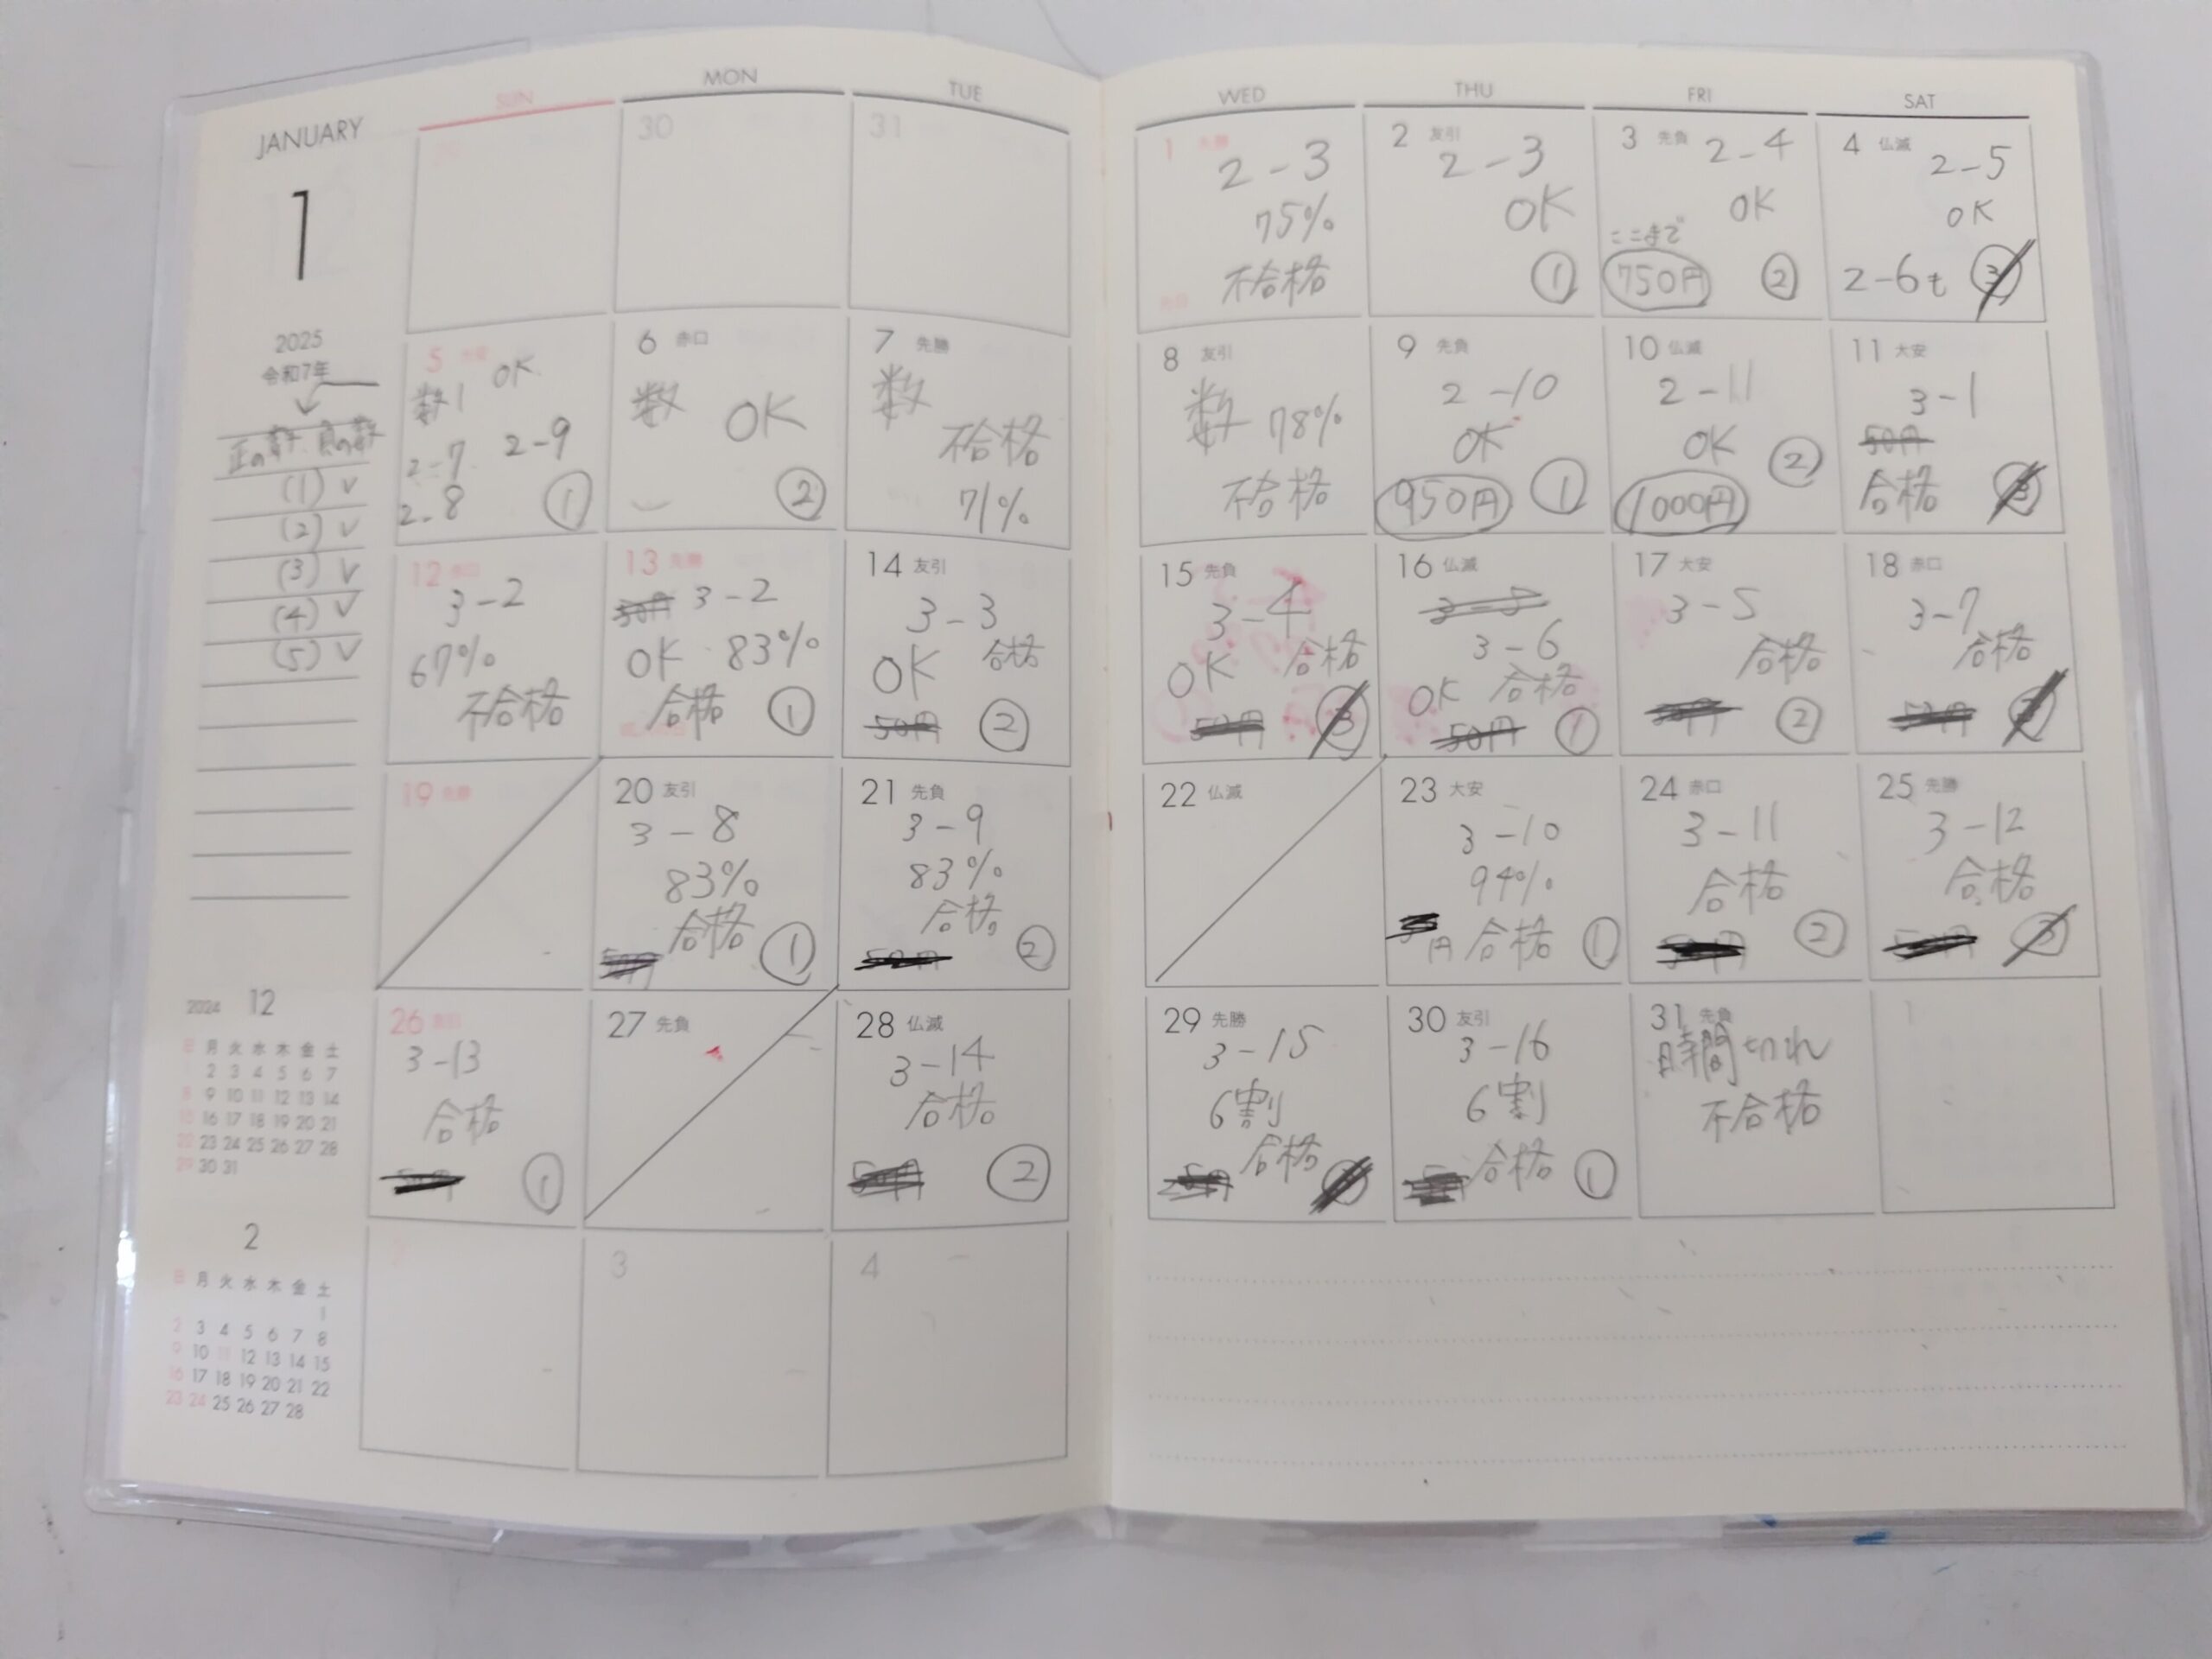 JANUARY
1
2025
令和7年
正の数 負の数
(1) ✓
(2) ✓
(3) ✓
(4) ✓
(5) ✓
SUN MON TUE WED THU FRI SAT
30
31
1 先勝
2-3
75%
不合格
2 友引
2-3
OK
①
3 先負
2-4
OK
ここまで
750円 ②
4 仏滅
2-5
OK
2-6も ③
5 大安
数1 OK
2-7 2-9
2-8 ①
6 赤口
数 OK
②
7 先勝
数
不合格
71%
8 友引
数 78%
不合格
9 先負
2-10
OK
950円 ①
10 仏滅
2-11
OK ②
1000円
11 大安
3-1
50円
合格 ③
12 赤口
3-2
67%
不合格
13 先勝
50円 3-2
OK 83%
合格 ①
14 友引
3-3
OK 合格
50円 ②
15 先負
3-4
OK 合格
50円 ③
16 仏滅
3-5
3-6
OK 合格
50円 ①
17 大安
3-5
合格
②
18 赤口
3-7
合格
50円
19 先勝
20 友引
3-8
83%
合格
50円 ①
21 先負
3-9
83%
合格
50円 ②
22 仏滅
23 大安
3-10
94%
円 合格 ①
24 赤口
3-11
合格
②
25 先勝
3-12
合格
50円 ③
26 友引
3-13
合格
①
27 先負
28 仏滅
3-14
合格
50円 ②
29 先勝
3-15
6割
合格
30 友引
3-16
6割
合格 ①
31 先負
時間切れ
不合格
1
3
4
2024 12
日 月 火 水 木 金 土
1 2 3 4 5 6 7
8 9 10 11 12 13 14
15 16 17 18 19 20 21
22 23 24 25 26 27 28
29 30 31
2
日 月 火 水 木 金 土
1
2 3 4 5 6 7 8
9 10 11 12 13 14 15
16 17 18 19 20 21 22
23 24 25 26 27 28